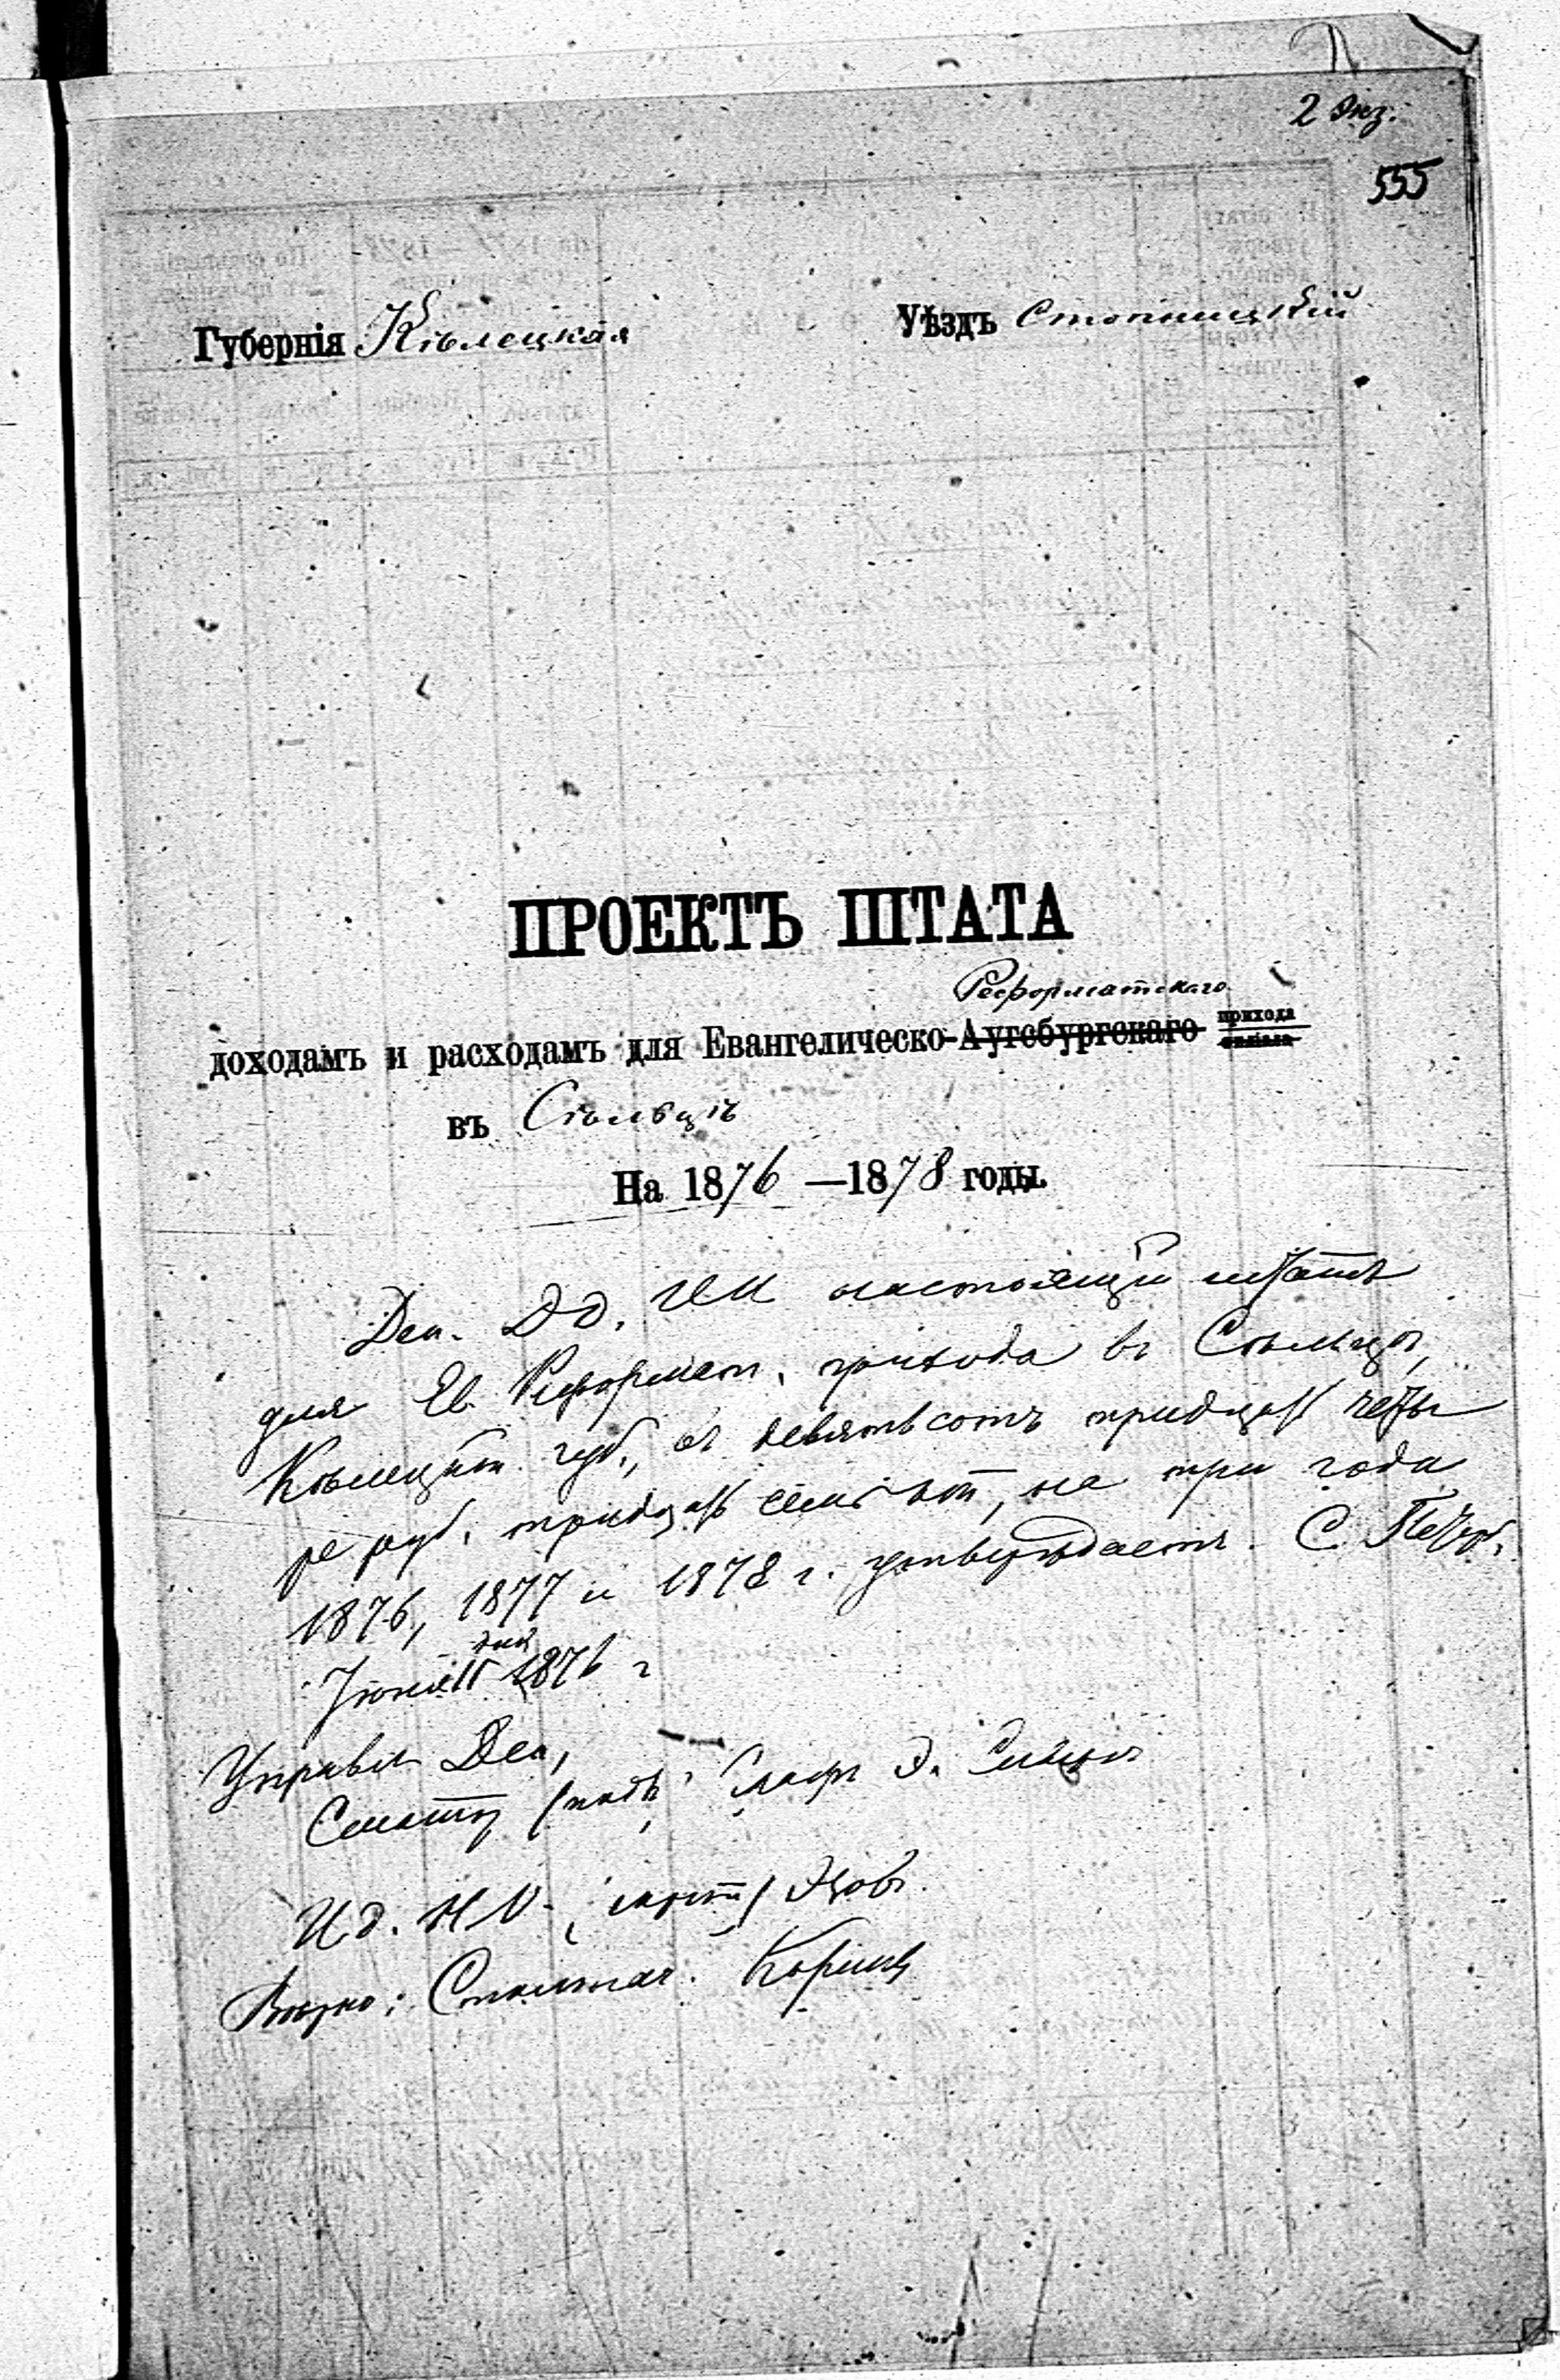 2 Экз.
555
Губернія Кѣлецкая Уѣздъ Стопницкій
ПРОЕКТЪ ШТАТА
Реформатскаго
доходамъ и расходамъ для Евангелическо-Аугсбургскаго прихода
филіала
въ Сѣльцѣ
На 1876 —1878 годы.
Деп. Д. д. И. И. настоящій штатъ
для Ев. Реформат. прихода въ Сѣльцѣ,
Кѣлецкой губ., въ девятьсотъ тридцать четы
ре руб. тридцать семь коп, на три года
1876, 1877 и 1878 г. утверждаетъ. С. Петерб.
Іюня 11 дня 1876 г
Управл. Деп,
Сенаторъ (подп. Графъ Э. Сиверсъ
И. д. Н. О.
Вѣрно: Столонач.